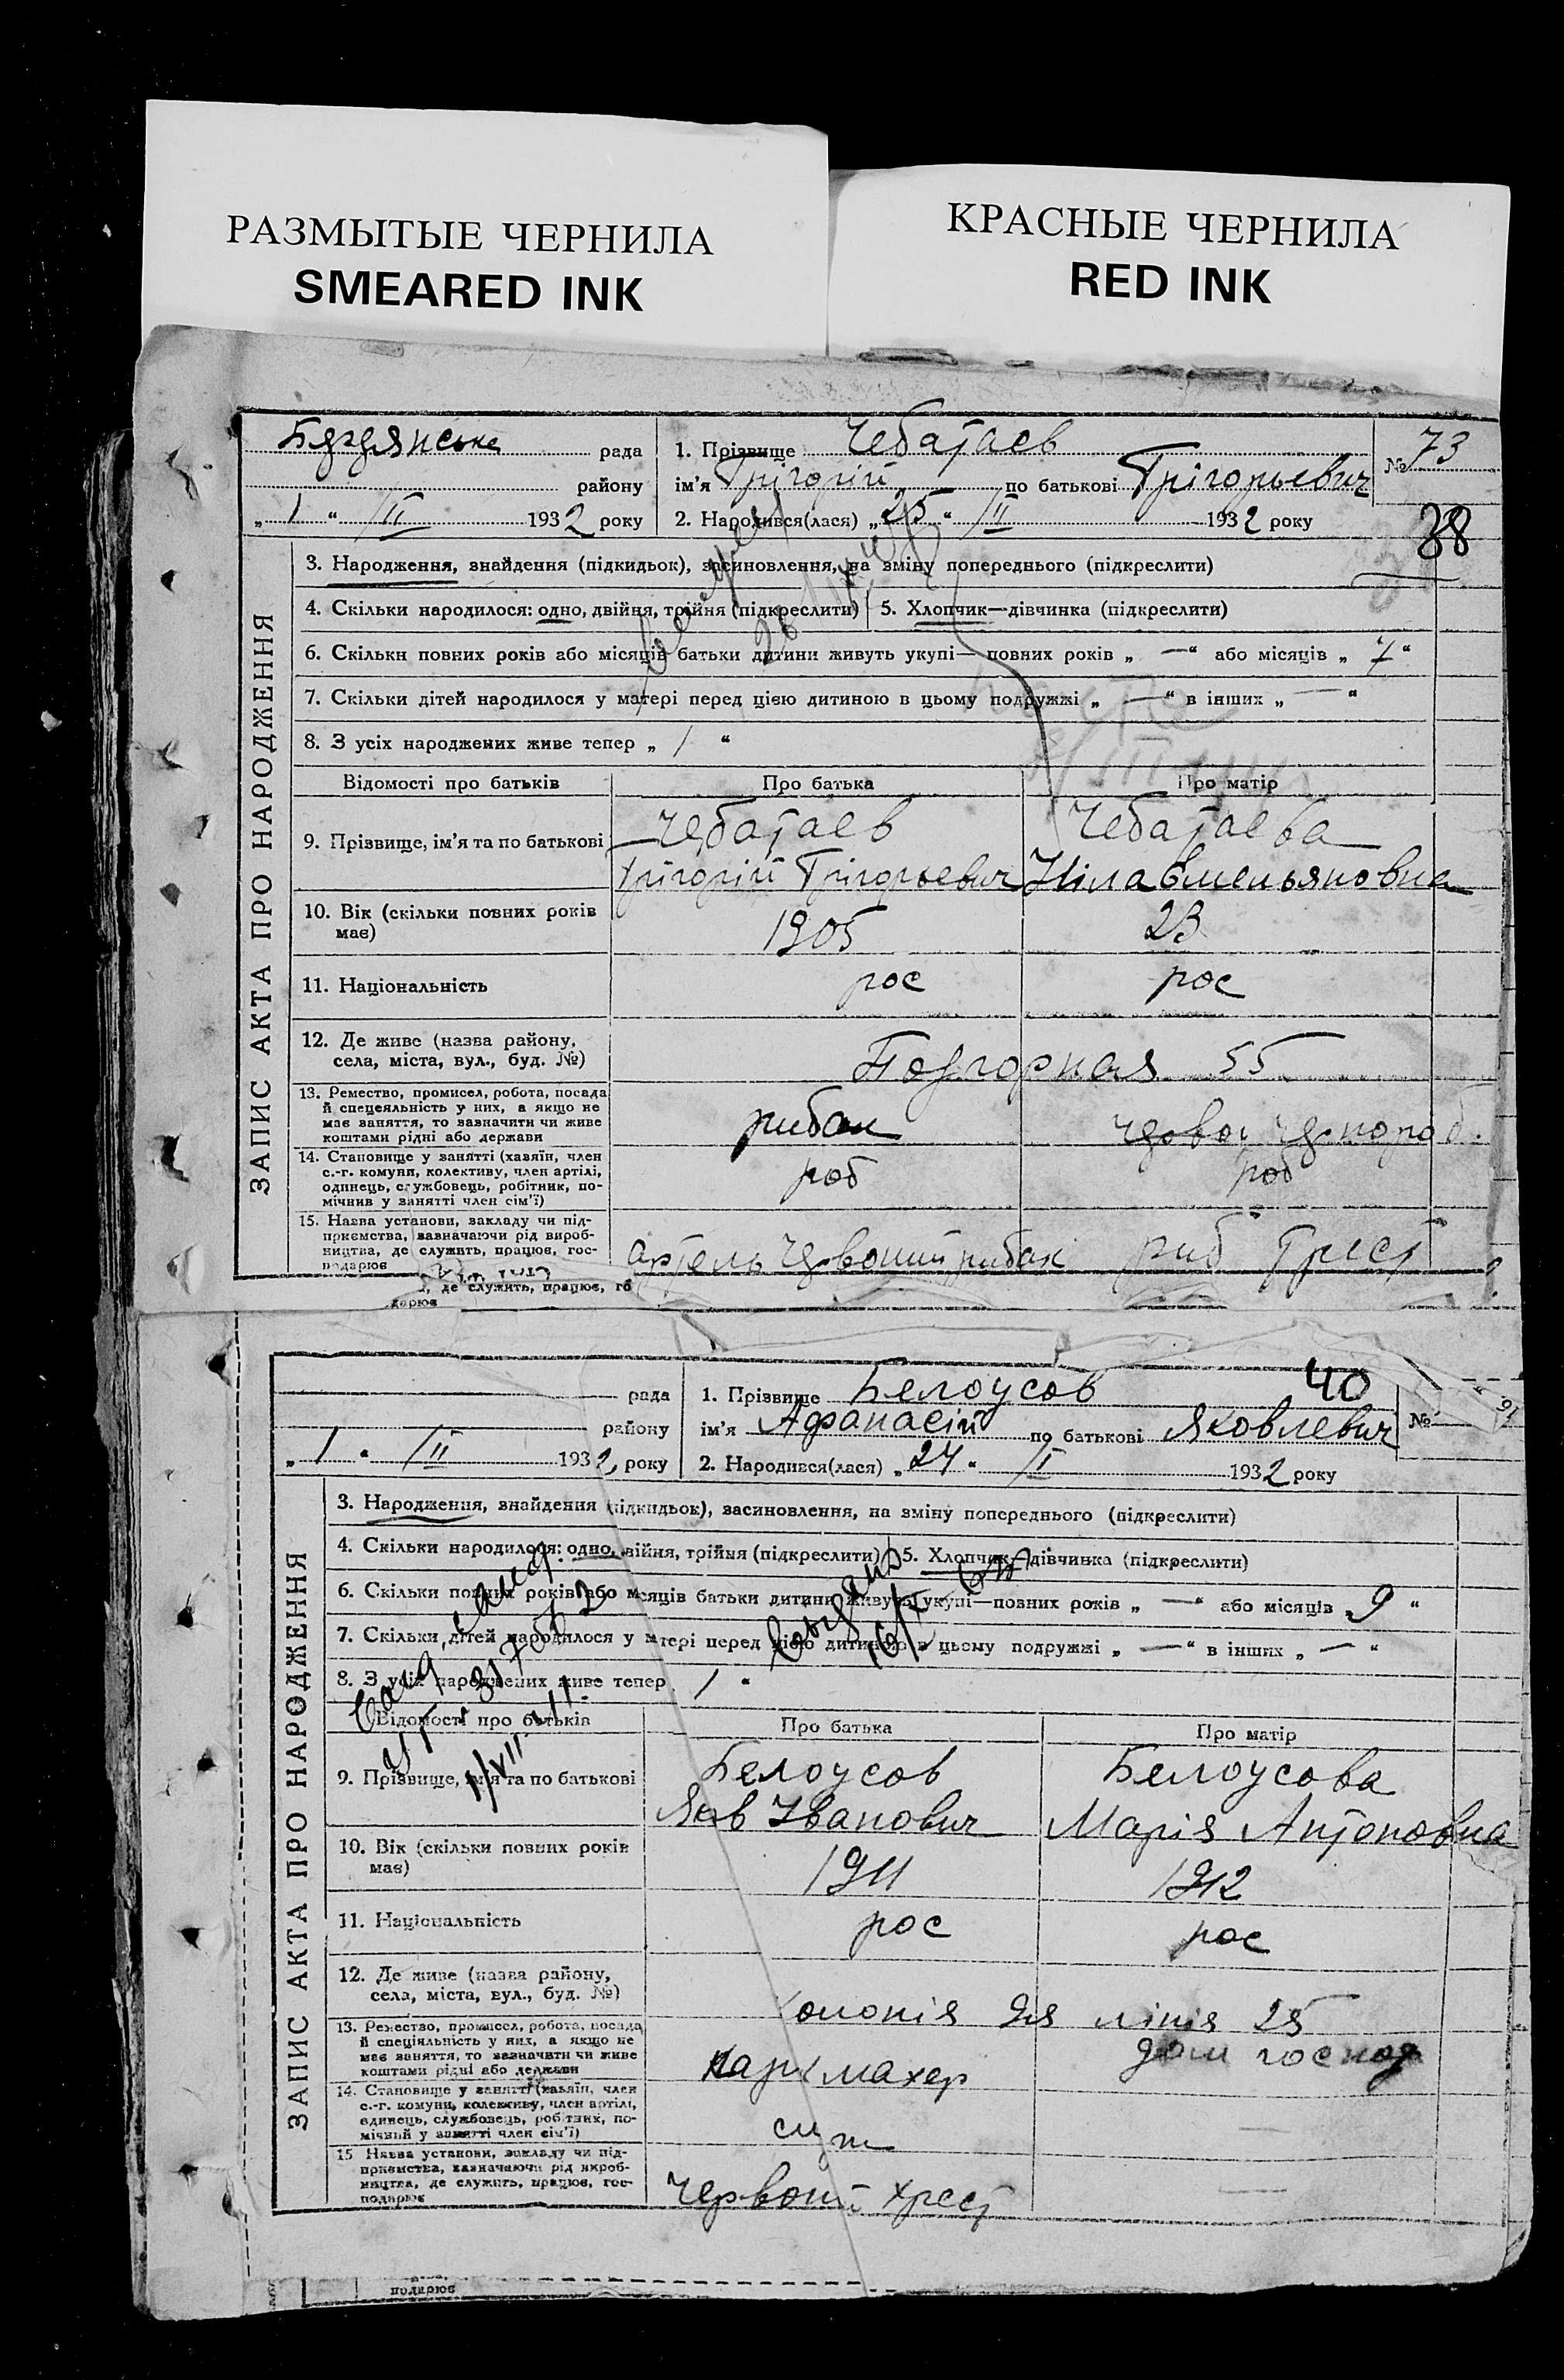 РАЗМЫТЫЕ ЧЕРНИЛА
SMEARED INK
КРАСНЫЕ ЧЕРНИЛА
RED INK
ЗАПИС АКТА ПРО НАРОДЖЕННЯ
Бердянське рада
району
„ 1 “ III 1932 року
1. Прізвище Чебатаев
ім'я Грігорій по батькові Грігорьевич
2. Народився(лася) „ 25 “ II 1932 року
№ 73
38
3. Народження, знайдення (підкидьок), засиновлення, на зміну попереднього (підкреслити)
4. Скільки народилося: одно, двійня, трійня (підкреслити)
5. Хлопчик—дівчинка (підкреслити)
6. Скільки повних років або місяців батьки дитини живуть укупі— повних років „ — “ або місяців „ 7 “
7. Скільки дітей народилося у матері перед цією дитиною в цьому подружжі „ — “ в інших „ — “
8. З усіх народжених живе тепер „ 1 “
Відомості про батьків
Про батька
Про матір
9. Прізвище, ім'я та по батькові
Чебатаев
Чебатаева
Грігорій Грігорьевич
Ніла Емельяновна
10. Вік (скільки повних років
має)
1905
23
11. Національність
рос
рос
12. Де живе (назва району,
села, міста, вул., буд. №)
Подгорная 55
13. Ремество, промисел, робота, посада
й спецеяльність у них, а якщо не
має заняття, то зазначити чи живе
коштами рідні або держави
рибак
14. Становище у занятті (хазяїн, член
с.-г. комуни, колективу, член артілі,
одинець, службовець, робітник, по-
мічник у занятті член сім'ї)
роб
роб
15. Назва установи, закладу чи під-
приємства, зазначаючи рід вироб-
ництва, де служить, працює, гос-
подарює
артель Червоний рибак
риб Трест
, де служить, працює, го
дарює
ЗАПИС АКТА ПРО НАРОДЖЕННЯ
рада
району
„ 1 “ III 1932 року
1. Прізвище Белоусов
40
ім'я Афанасій по батькові Яковлевич
2. Народився(лася) „ 24 “ I 1932 року
№
3. Народження, знайдення (підкидьок), засиновлення, на зміну попереднього (підкреслити)
4. Скільки народилося: одно, війня, трійня (підкреслити)
5. Хлопчик—дівчинка (підкреслити)
6. Скільки повних років або місяців батьки дитини живуть укупі—повних років „ — “ або місяців „ 9 “
7. Скільки дітей народилося у матері перед цією дитиною в цьому подружжі „ — “ в інших „ — “
8. З усіх народжених живе тепер 1 “
Відомості про батьків
Про батька
Про матір
9. Прізвище, ім'я та по батькові
Белоусов
Белоусова
Яків Іванович
Марія Антоновна
10. Вік (скільки повних років
має)
1911
1912
11. Національність
рос
рос
12. Де живе (назва району,
села, міста, вул., буд. №)
Колонія 9я лінія 25
13. Ремество, промисел, робота, посада
й спеціяльність у них, а якщо не
має заняття, то зазначити чи живе
коштами рідні або держави
парікмахер
дом господ
14. Становище у занятті (хазяїн, член
с.-г. комуни, колективу, член артілі,
одинець, службовець, робітник, по-
мічный у занятті член сім'ї)
служ
15 Назва установи, закладу чи під-
приємства, зазначаючи рід вироб-
ництва, де служить, працює, гос-
подарює
Червоний хрест
подарює